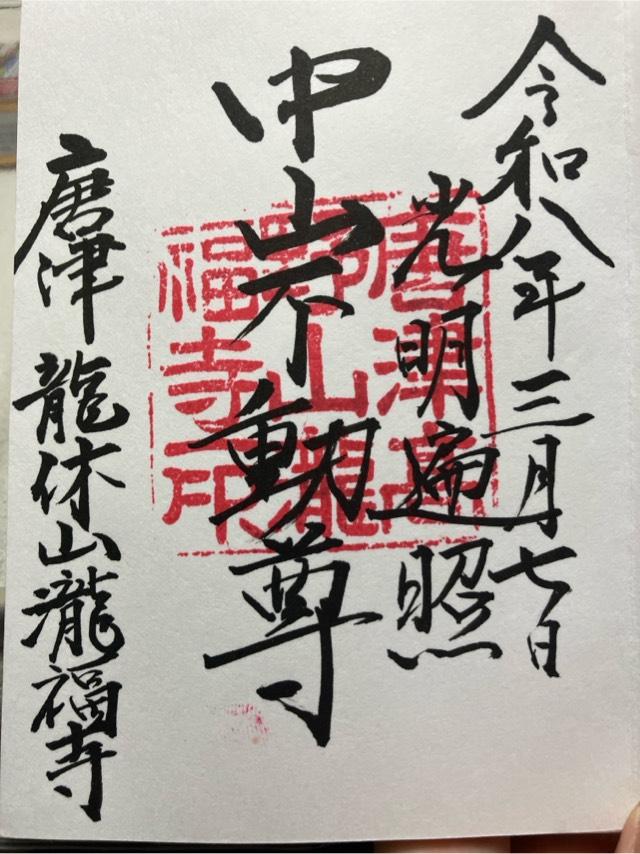 令和八年三月七日
光明遍照
中山不動尊
唐津 龍休山瀧福寺
唐津高
野山瀧
福寺印